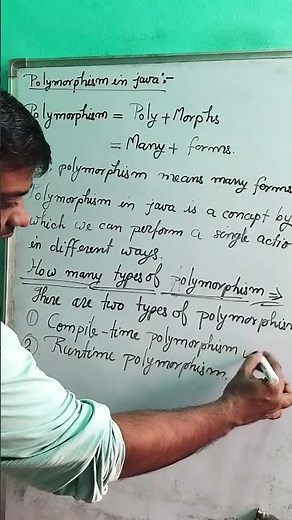 Polymorphism in java:-
Polymorphism = Poly + Morphs
= Many + forms.
polymorphism means many forms
Polymorphism in java is a concept by
which we can perform a single actio
in different ways.
How many types of polymorphism ⇒
There are two types of polymorphism
① Compile-time polymorphism
②. Runtime polymorphism